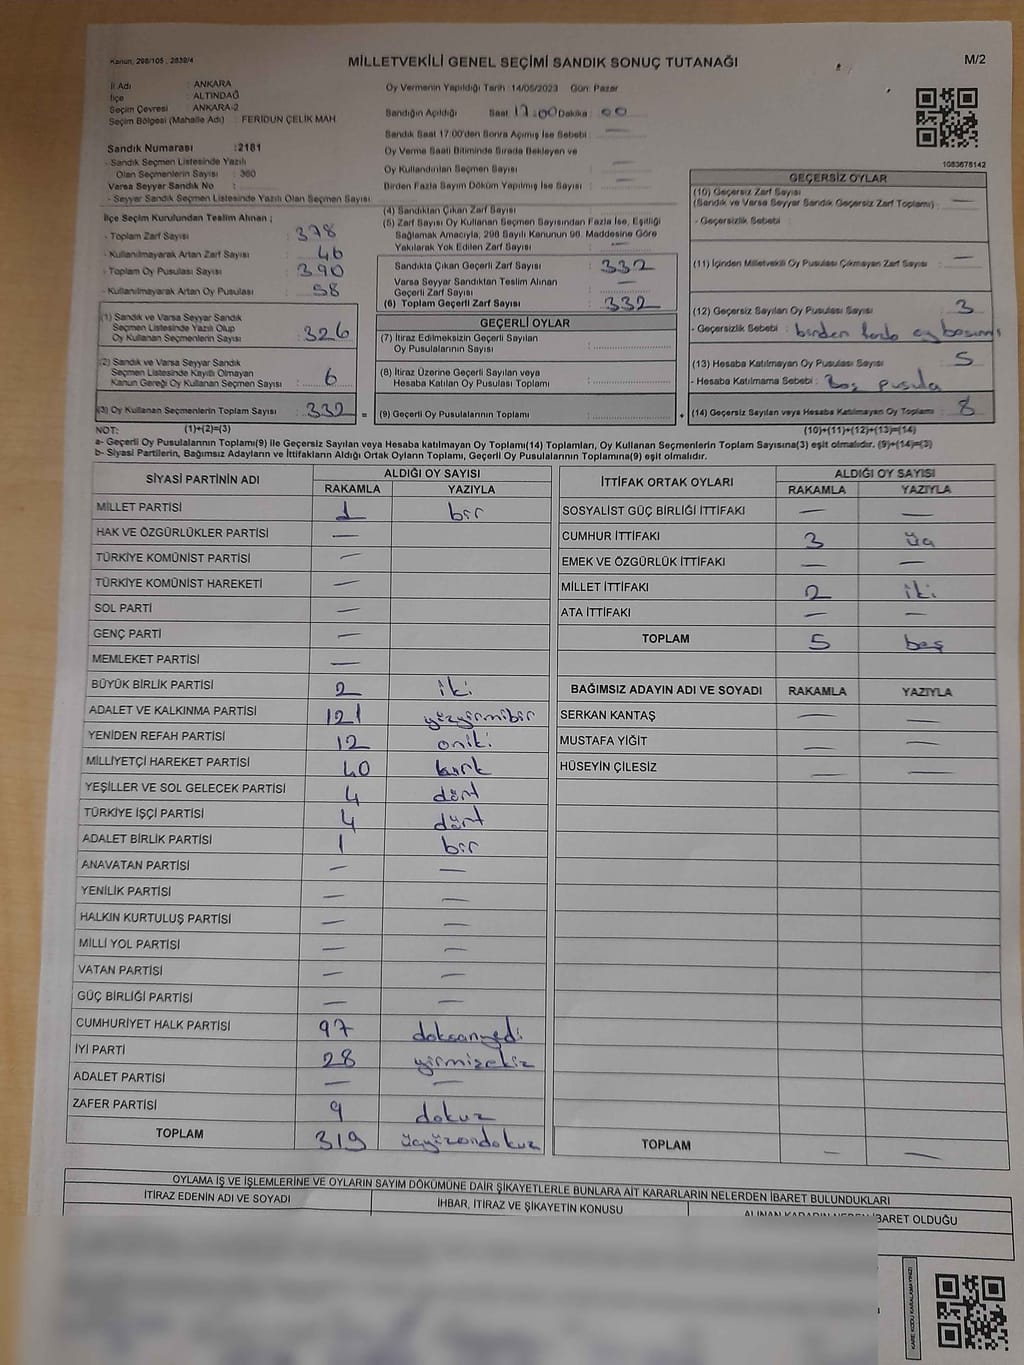 Kanun, 298/105 , 2839/4
MİLLETVEKİLİ GENEL SEÇİMİ SANDIK SONUÇ TUTANAĞI
M/2
İl Adı : ANKARA
İlçe : ALTINDAĞ
Seçim Çevresi : ANKARA-2
Seçim Bölgesi (Mahalle Adı) : FERİDUN ÇELİK MAH
Sandık Numarası :2181
- Sandık Seçmen Listesinde Yazılı
Olan Seçmenlerin Sayısı : 360
Varsa Seyyar Sandık No :
- Seyyar Sandık Seçmen Listesinde Yazılı Olan Seçmen Sayısı
Oy Vermenin Yapıldığı Tarih : 14/05/2023 Gün: Pazar
Sandığın Açıldığı Saat : 17:00 Dakika : 00
Sandık Saat 17:00'den Sonra Açmış İse Sebebi : —
Oy Verme Saati Bitiminde Sırada Bekleyen ve
Oy Kullandırılan Seçmen Sayısı : —
Birden Fazla Sayım Döküm Yapılmış İse Sayısı : —
1083678142
İlçe Seçim Kurulundan Teslim Alınan ;
- Toplam Zarf Sayısı : 378
- Kullanılmayarak Artan Zarf Sayısı : 46
- Toplam Oy Pusulası Sayısı : 390
- Kullanılmayarak Artan Oy Pusulası : 58
(1) Sandık ve Varsa Seyyar Sandık
Seçmen Listesinde Yazılı Olup
Oy Kullanan Seçmenlerin Sayısı : 326
(2) Sandık ve Varsa Seyyar Sandık
Seçmen Listesinde Kayıtlı Olmayan
Kanun Gereği Oy Kullanan Seçmen Sayısı : 6
(3) Oy Kullanan Seçmenlerin Toplam Sayısı : 332 =
(4) Sandıktan Çıkan Zarf Sayısı :
(5) Zarf Sayısı Oy Kullanan Seçmen Sayısından Fazla İse, Eşitliği
Sağlamak Amacıyla, 298 Sayılı Kanunun 98. Maddesine Göre
Yakılarak Yok Edilen Zarf Sayısı : —
Sandıkta Çıkan Geçerli Zarf Sayısı : 332
Varsa Seyyar Sandıktan Teslim Alınan
Geçerli Zarf Sayısı : —
(6) Toplam Geçerli Zarf Sayısı : 332
GEÇERLİ OYLAR
(7) İtiraz Edilmeksizin Geçerli Sayılan
Oy Pusulalarının Sayısı :
(8) İtiraz Üzerine Geçerli Sayılan veya
Hesaba Katılan Oy Pusulası Toplamı :
(9) Geçerli Oy Pusulalarının Toplamı : +
GEÇERSİZ OYLAR
(10) Geçersiz Zarf Sayısı
(Sandık ve Varsa Seyyar Sandık Geçersiz Zarf Toplamı) : —
- Geçersizlik Sebebi :
(11) İçinden Milletvekili Oy Pusulası Çıkmayan Zarf Sayısı : —
(12) Geçersiz Sayılan Oy Pusulası Sayısı : 3
- Geçersizlik Sebebi : birden fazla oy basımı
(13) Hesaba Katılmayan Oy Pusulası Sayısı : 5
- Hesaba Katılmama Sebebi : Boş pusula
(14) Geçersiz Sayılan veya Hesaba Katılmayan Oy Toplamı : 8
NOT: (1)+(2)=(3) (10)+(11)+(12)+(13)=(14)
a- Geçerli Oy Pusulalarının Toplamı(9) ile Geçersiz Sayılan veya Hesaba katılmayan Oy Toplamı(14) Toplamları, Oy Kullanan Seçmenlerin Toplam Sayısına(3) eşit olmalıdır. (9)+(14)=(3)
b- Siyasi Partilerin, Bağımsız Adayların ve İttifakların Aldığı Ortak Oyların Toplamı, Geçerli Oy Pusulalarının Toplamına(9) eşit olmalıdır.
SİYASİ PARTİNİN ADI ALDIĞI OY SAYISI
RAKAMLA YAZIYLA
MİLLET PARTİSİ 1 bir
HAK VE ÖZGÜRLÜKLER PARTİSİ —
TÜRKİYE KOMÜNİST PARTİSİ —
TÜRKİYE KOMÜNİST HAREKETİ —
SOL PARTİ —
GENÇ PARTİ —
MEMLEKET PARTİSİ —
BÜYÜK BİRLİK PARTİSİ 2 iki
ADALET VE KALKINMA PARTİSİ 121 yüzyirmibir
YENİDEN REFAH PARTİSİ 12 oniki
MİLLİYETÇİ HAREKET PARTİSİ 40 kırk
YEŞİLLER VE SOL GELECEK PARTİSİ 4 dört
TÜRKİYE İŞÇİ PARTİSİ 4 dört
ADALET BİRLİK PARTİSİ 1 bir
ANAVATAN PARTİSİ — —
YENİLİK PARTİSİ — —
HALKIN KURTULUŞ PARTİSİ — —
MİLLİ YOL PARTİSİ — —
VATAN PARTİSİ — —
GÜÇ BİRLİĞİ PARTİSİ — —
CUMHURİYET HALK PARTİSİ 97 doksanyedi
İYİ PARTİ 28 yirmisekiz
ADALET PARTİSİ — —
ZAFER PARTİSİ 9 dokuz
TOPLAM 319 üçyüzondokuz
İTTİFAK ORTAK OYLARI ALDIĞI OY SAYISI
RAKAMLA YAZIYLA
SOSYALİST GÜÇ BİRLİĞİ İTTİFAKI — —
CUMHUR İTTİFAKI 3 üç
EMEK VE ÖZGÜRLÜK İTTİFAKI — —
MİLLET İTTİFAKI 2 iki
ATA İTTİFAKI — —
TOPLAM 5 beş
BAĞIMSIZ ADAYIN ADI VE SOYADI RAKAMLA YAZIYLA
SERKAN KANTAŞ — —
MUSTAFA YİĞİT — —
HÜSEYİN ÇİLESİZ — —
TOPLAM — —
OYLAMA İŞ VE İŞLEMLERİNE VE OYLARIN SAYIM DÖKÜMÜNE DAİR ŞİKAYETLERLE BUNLARA AİT KARARLARIN NELERDEN İBARET BULUNDUKLARI
İTİRAZ EDENİN ADI VE SOYADI İHBAR, İTİRAZ VE ŞİKAYETİN KONUSU ALINAN KARARIN NEDEN İBARET OLDUĞU
KARE KODU KARALAMAYINIZ!